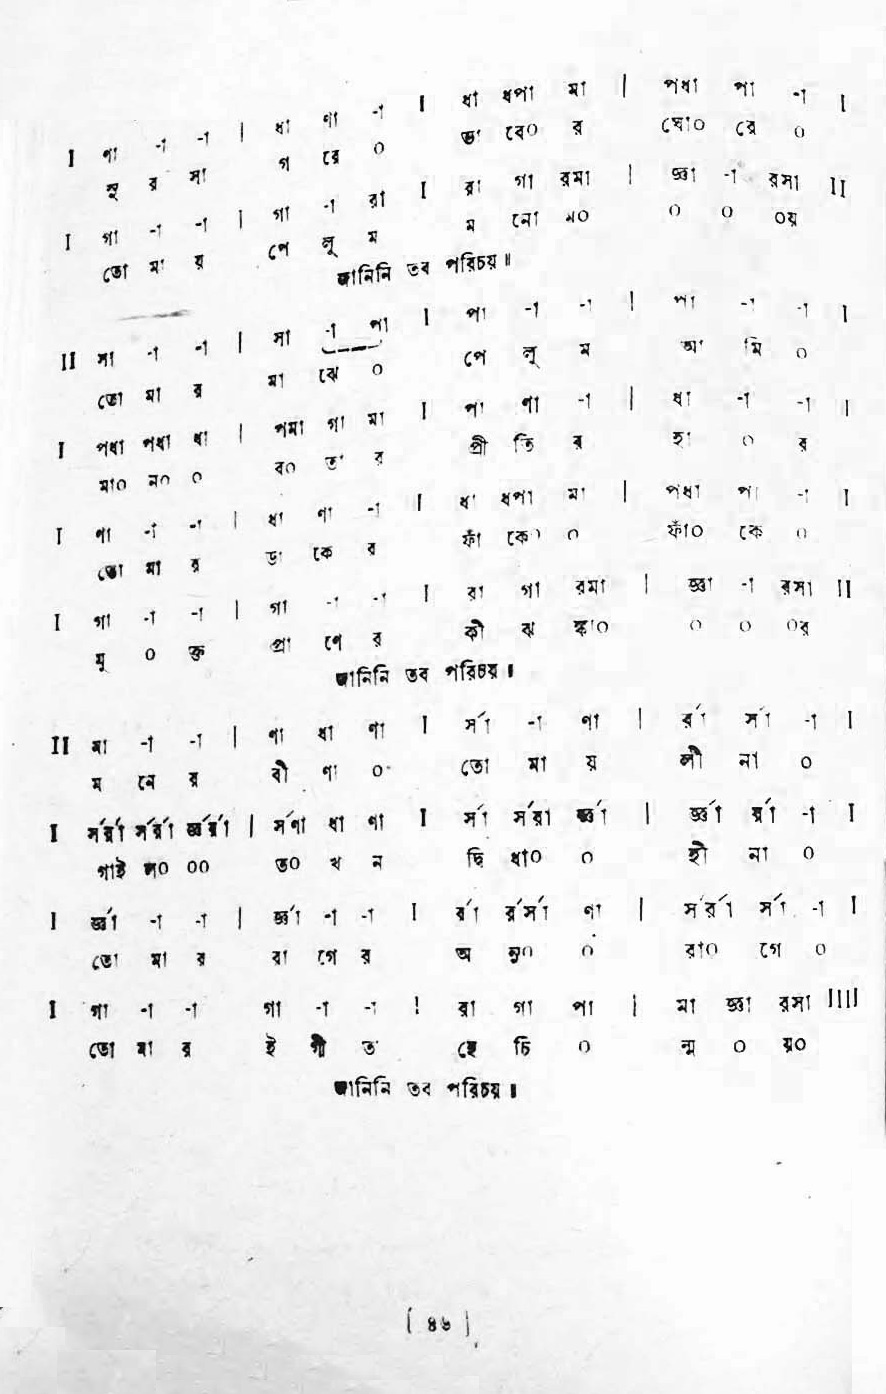 I ণা -া -া | ধা ণা -া I ধা ধপা মা | পধা পা -া I
সু র সা গ রে ০ ভা বে০ র ঘো০ রে ০
I গা -া -া | গা -া রা I রা গা রমা | জ্ঞা -া রসা II
তো মা য় পে লু ম ম নো ম০ ০ ০ ০য়
জানিনি তব পরিচয়॥
II সা -া -া | সা -া পা I পা -া -া | পা -া -া I
তো মা র মা ঝে ০ পে লু ম আ মি ০
I পধা পধা ধা | পমা গা মা I পা ণা -া | ধা -া -া I
মা০ ন০ ০ ব০ তা র প্রী তি র হা ০ র
I ণা -া -া | ধা ণা -া I ধা ধপা মা | পধা পা -া I
তো মা র ডা কে র ফাঁ কে০ ০ ফাঁ০ কে ০
I গা -া -া | গা -া -া I রা গা রমা | জ্ঞা -া রসা II
মু ০ ক্ত প্রা ণে র কী ঝ ঙ্কা০ ০ ০ ০র
জানিনি তব পরিচয়॥
II মা -া -া | ণা ধা ণা I র্সা -া ণা | র্রা র্সা -া I
ম নে র বী ণা ০ তো মা য় লী না ০
I র্সর্রা র্সর্রা র্জ্ঞর্রা | র্সণা ধা ণা I র্সা র্সরা র্জ্ঞা | র্জ্ঞা র্রা -া I
গাই ল০ ০০ ত০ খ ন দ্বি ধা০ ০ হী না ০
I র্জ্ঞা -া -া | র্জ্ঞা -া -া I র্রা র্রর্সা ণা | র্সর্রা র্সা -া I
তো মা র রা গে র অ নু০ ০ রা০ গে ০
I গা -া -া গা -া -া ! রা গা পা | মা জ্ঞা রসা IIII
তো মা র ই গী ত হে চি ০ ন্ম ০ য়০
জানিনি তব পরিচয়॥
[ ৪৬ ]